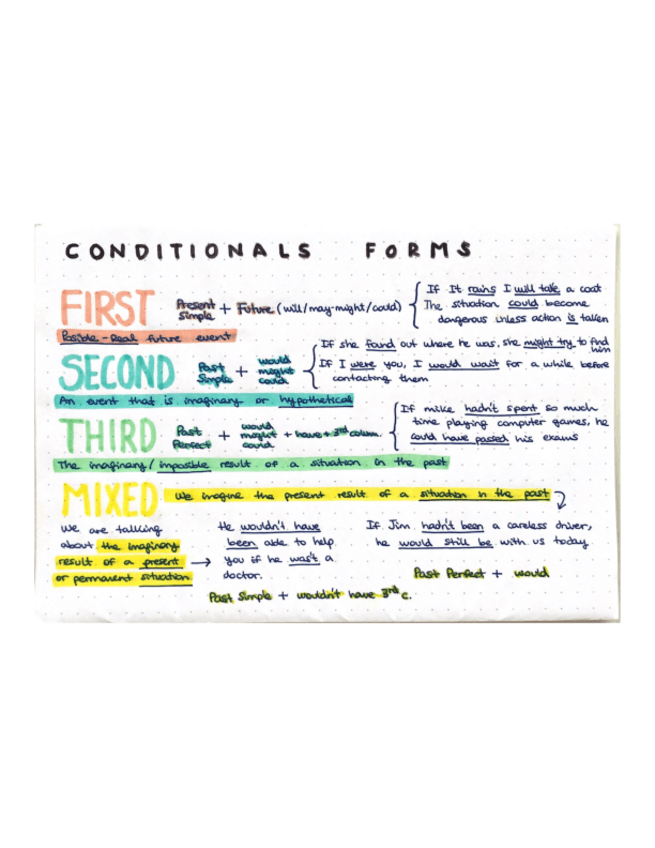 CONDITIONALS FORMS
FIRST
Present Simple + Future (will/may-might/could)
If It rains I will take a coat
The situation could become
dangerous unless action is taken
Posible-Real future event
SECOND
Past Simple + would might could
If she found out where he was, she might try to find him
If I were you, I would wait for a while before
contacting them
An event that is imaginary or hypothetical
THIRD
Past Perfect + would might could + have + 3rd column.
If mike hadn't spent so much
time playing computer games, he
could have passed his exams
The imaginary/impossible result of a situation in the past
MIXED
We imagine the present result of a situation in the past
We are talking
about the imaginary
result of a present
or permanent situation
He wouldn't have
been able to help
you if he wasn't a
doctor.
Past Simple + wouldn't have 3rd c.
If Jim hadn't been a careless driver,
he would still be with us today
Past Perfect + would